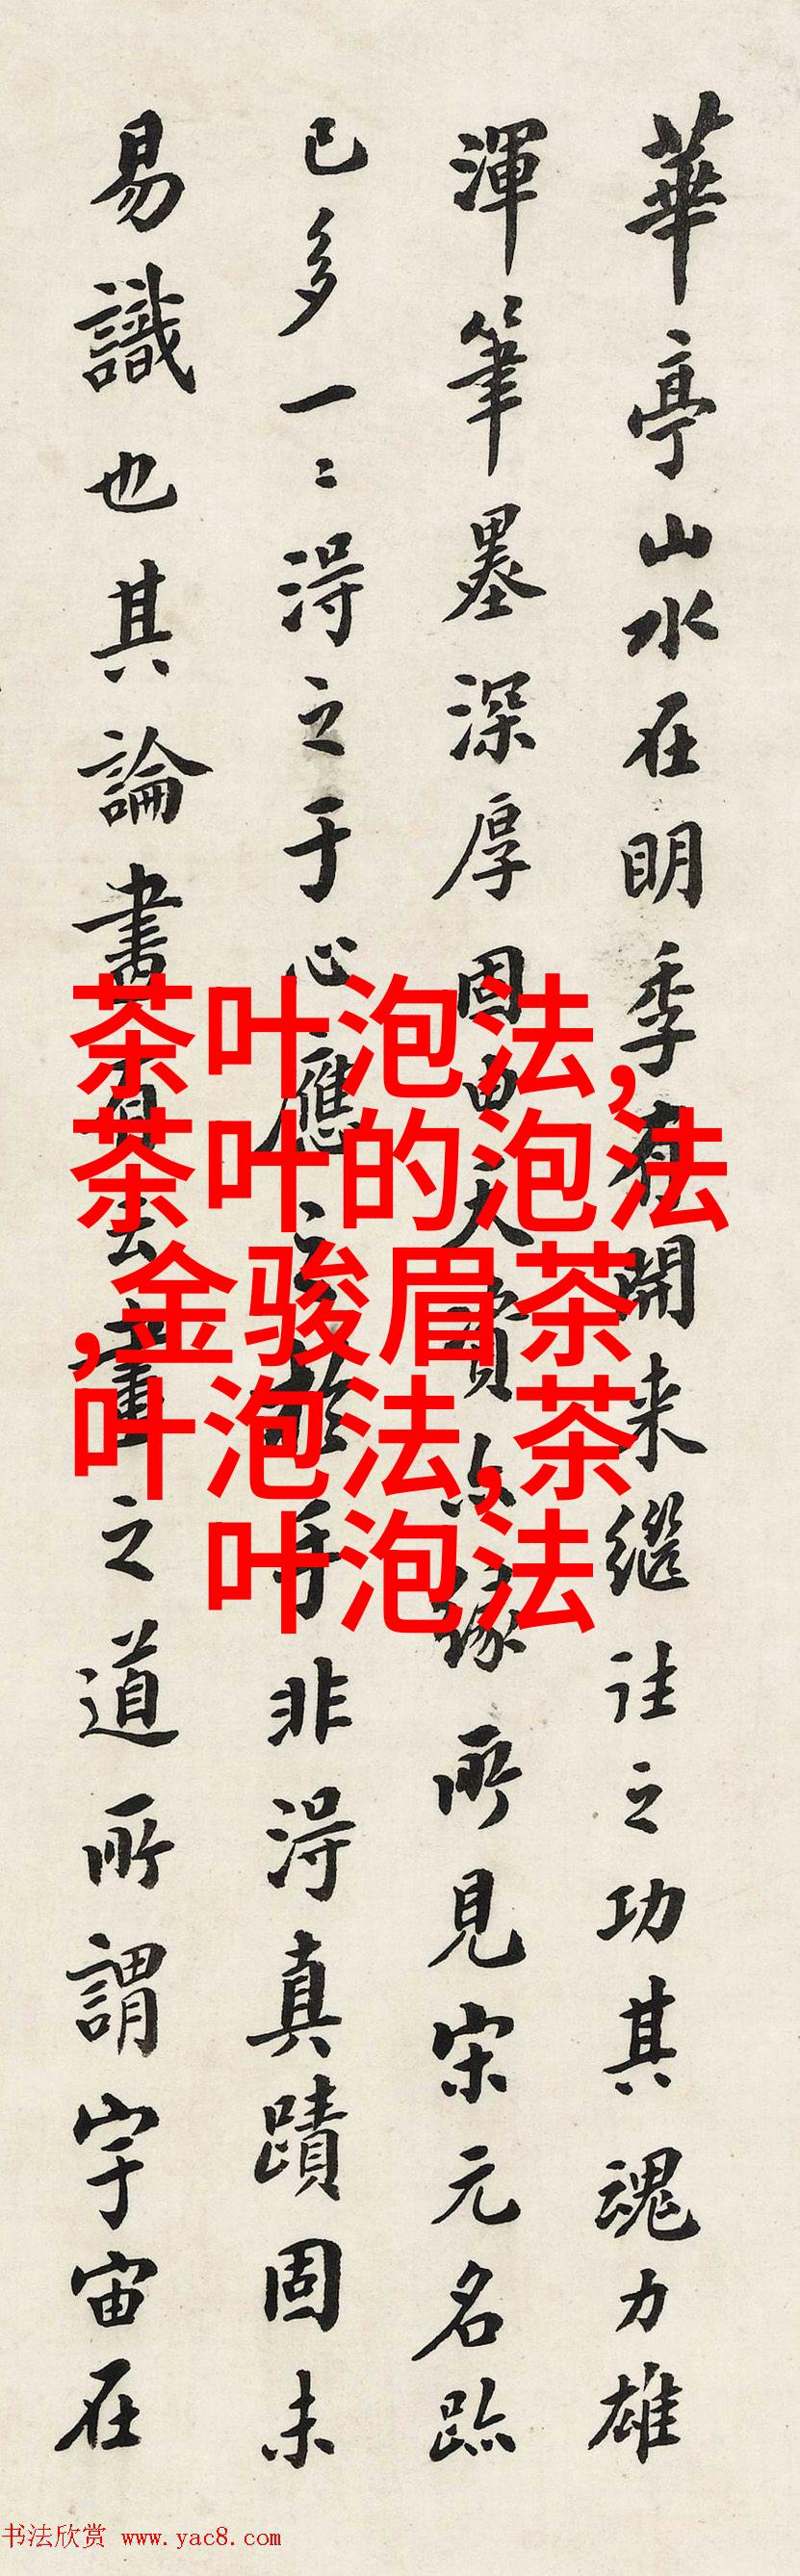 華亭山水在明季有開来繼往之功其魂力雄
渾筆墨深厚固由天資亦緣所見宋元名跡
已多一二得之于心應之於手非得真蹟固未
易識也其論畫有法畫之道所謂宇宙在
茶叶泡法,
茶叶的泡法
,金骏眉茶
叶泡法,茶
叶泡法
书法欣赏 www.yac8.com